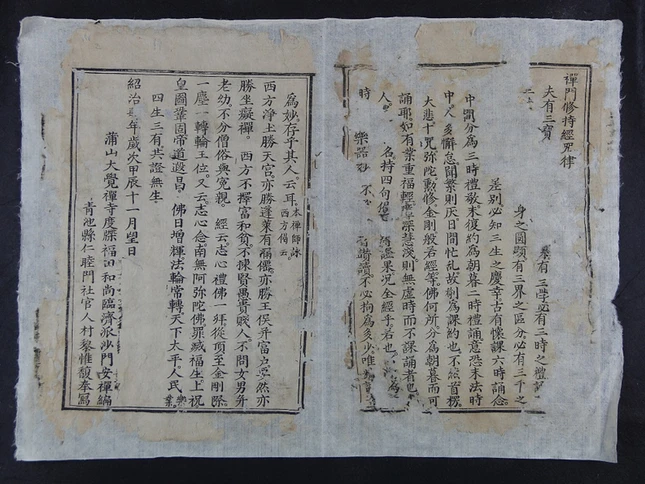 禪門修持經咒律
夫有三寶 有三學必有三時之禮
身之圓頭有三界之區分必有三千之
差別必知三生之慶幸古有懷課六時誦念
中間分為三時禮敬末復約為朝暮二時禮誦意恐末法時
中人多懈怠閙繁則厭日間忙亂故制為課約也不 首楞
大悲十咒弥陀懃修金剛般若經等佛何所分為朝暮而可
誦耶如有業重福輕障深慧淺則無虛時而不課誦者也
人 名持四句偈 果况全經乎若也 為
時 樂 不 讀不必拘為多少唯
為妙存乎其人云耳 本禪師詠西方偈云
西方淨土勝天宮亦勝蓬萊有福僊亦勝王侯并富 然亦
勝坐凝禪 西方不擇富和貧不揀賢愚貴賤人不問女男并
老幼不分僧俗與冤親 經云志心禮佛一拜從項至金剛際
一塵一轉輪王位又云志心念南無阿弥陀佛罪滅福生上祝
皇圖鞏固帝道遐昌 佛日增輝法輪常轉天下太平人民樂業
四生三有共證無生
紹治 年歲次甲辰十一月望日
蒲山大覺禪寺度牒福田和尚臨濟派沙門安禪編
青池縣仁睦門社官人村黎惟馥奉寫